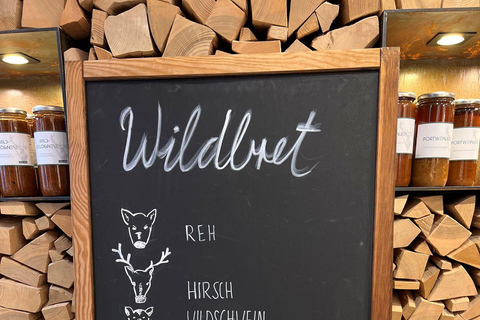 Wildbret
REH
HIRSCH
WILDSCHWEIN
PORTWEIN